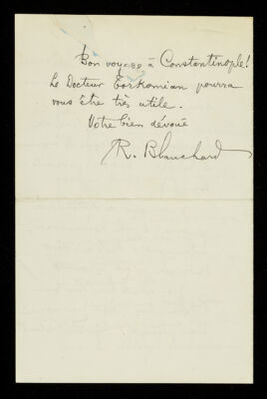 Bon voyage à Constantinople!
Le Docteur Torkomian pourra
vous être très utile.
Votre bien dévoué
R. Blanchard